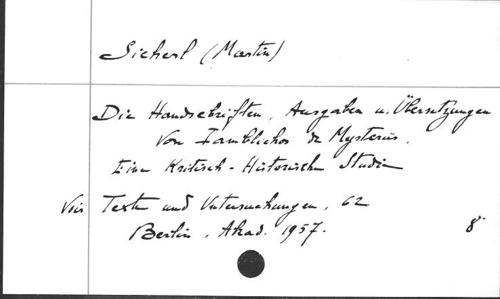 Sicherl (Martin)
Die Handschriften, Ausgaben u. Übersetzungen
von Iamblichos de Mysteriis.
Eine Kritisch-Historische Studie
Voir Texte und Untersuchungen, 62
Berlin, Akad. 1957. 8°